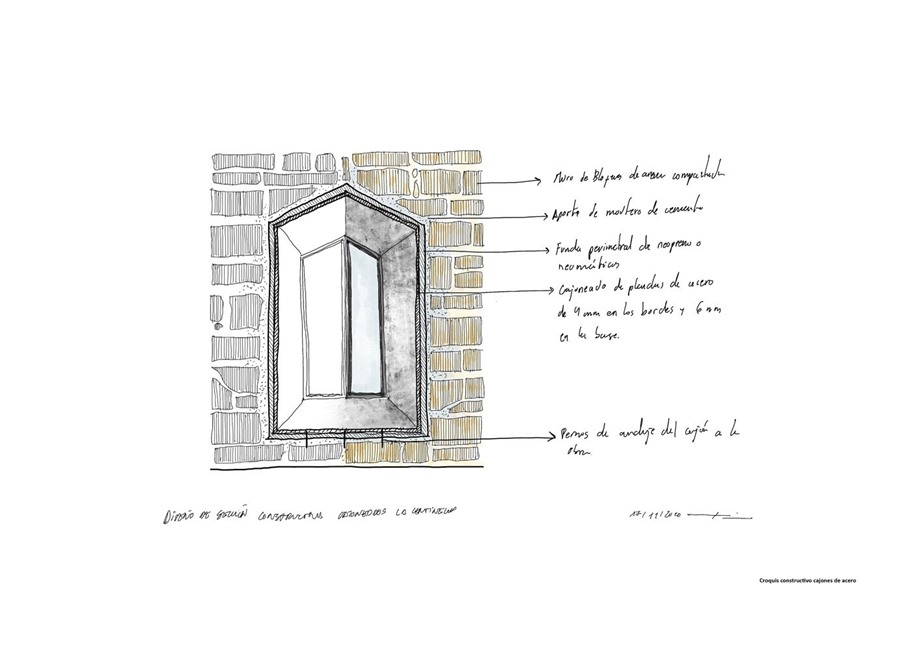 Muro de Bloques de arena compactada
Aporte de mortero de cemento
Funda perimetral de neopreno o
neumáticos
Cajoneado de planchas de acero
de 4 mm en los bordes y 6 mm
en la base.
Pernos de anclaje del cajón a la
obra
DISEÑO DE SOLUCIÓN CONSTRUCTIVA CAJONEADOS LA CENTINELA
17/11/2020
Croquis constructivo cajones de acero